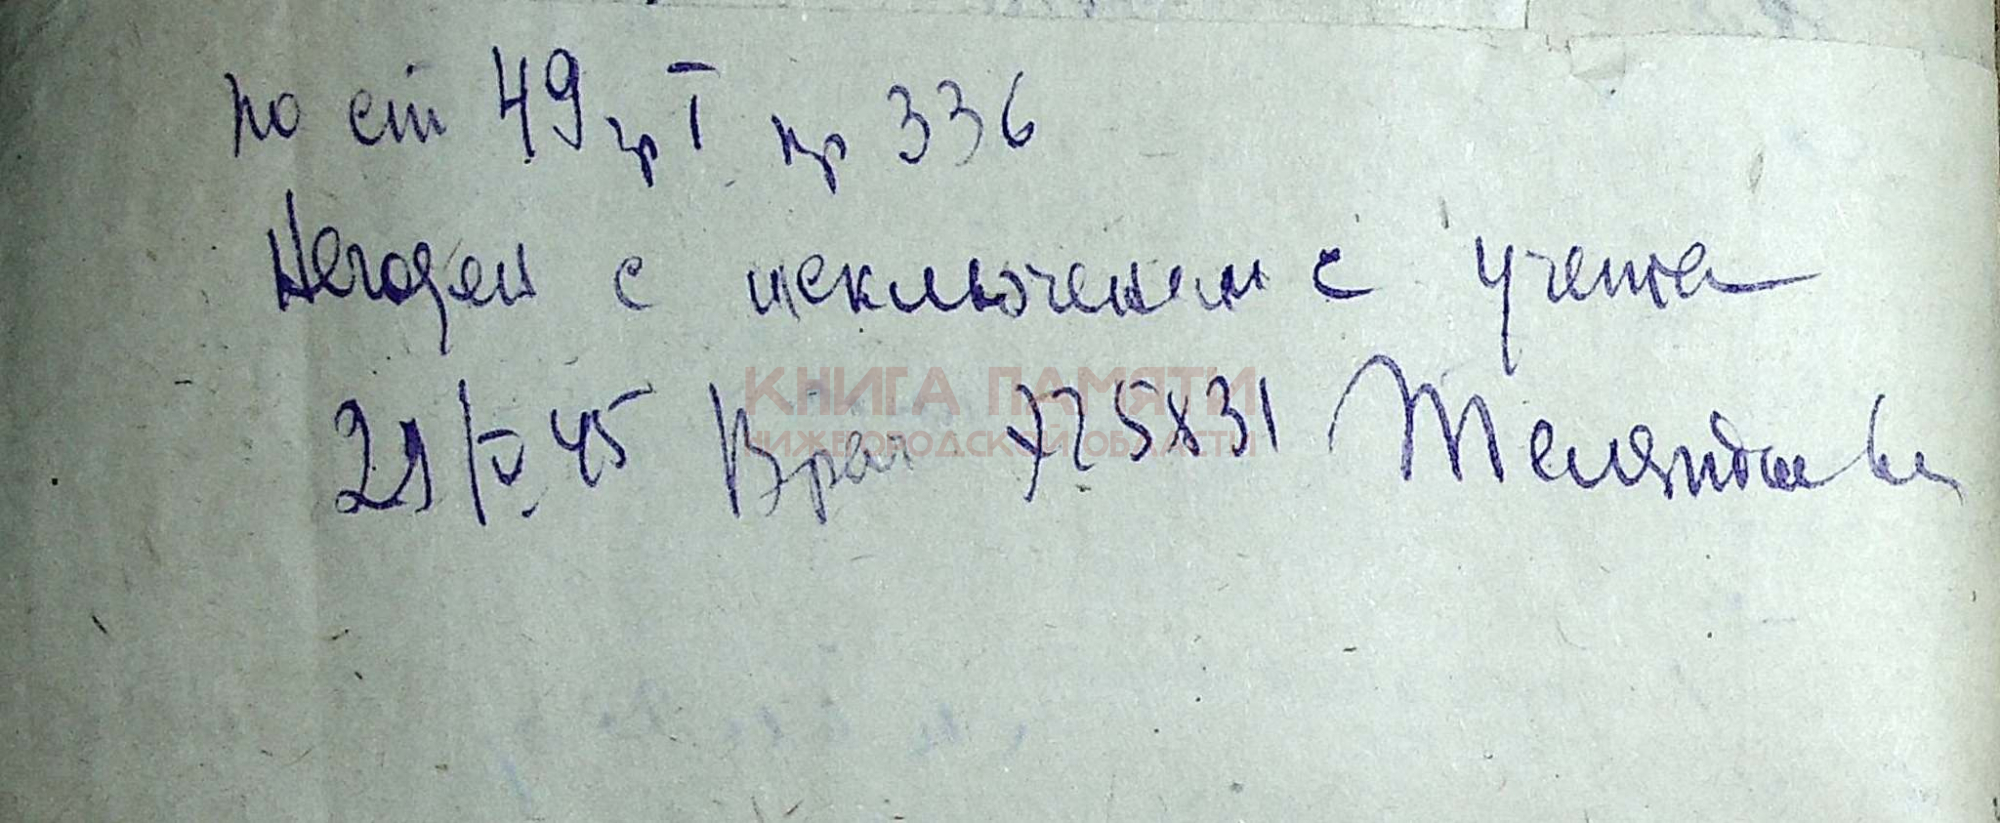 по ст 49 гр I пр 336
Негоден с исключением с учета
29/V 45 Врач
КНИГА ПАМЯТИ
НИЖЕГОРОДСКОЙ ОБЛАСТИ